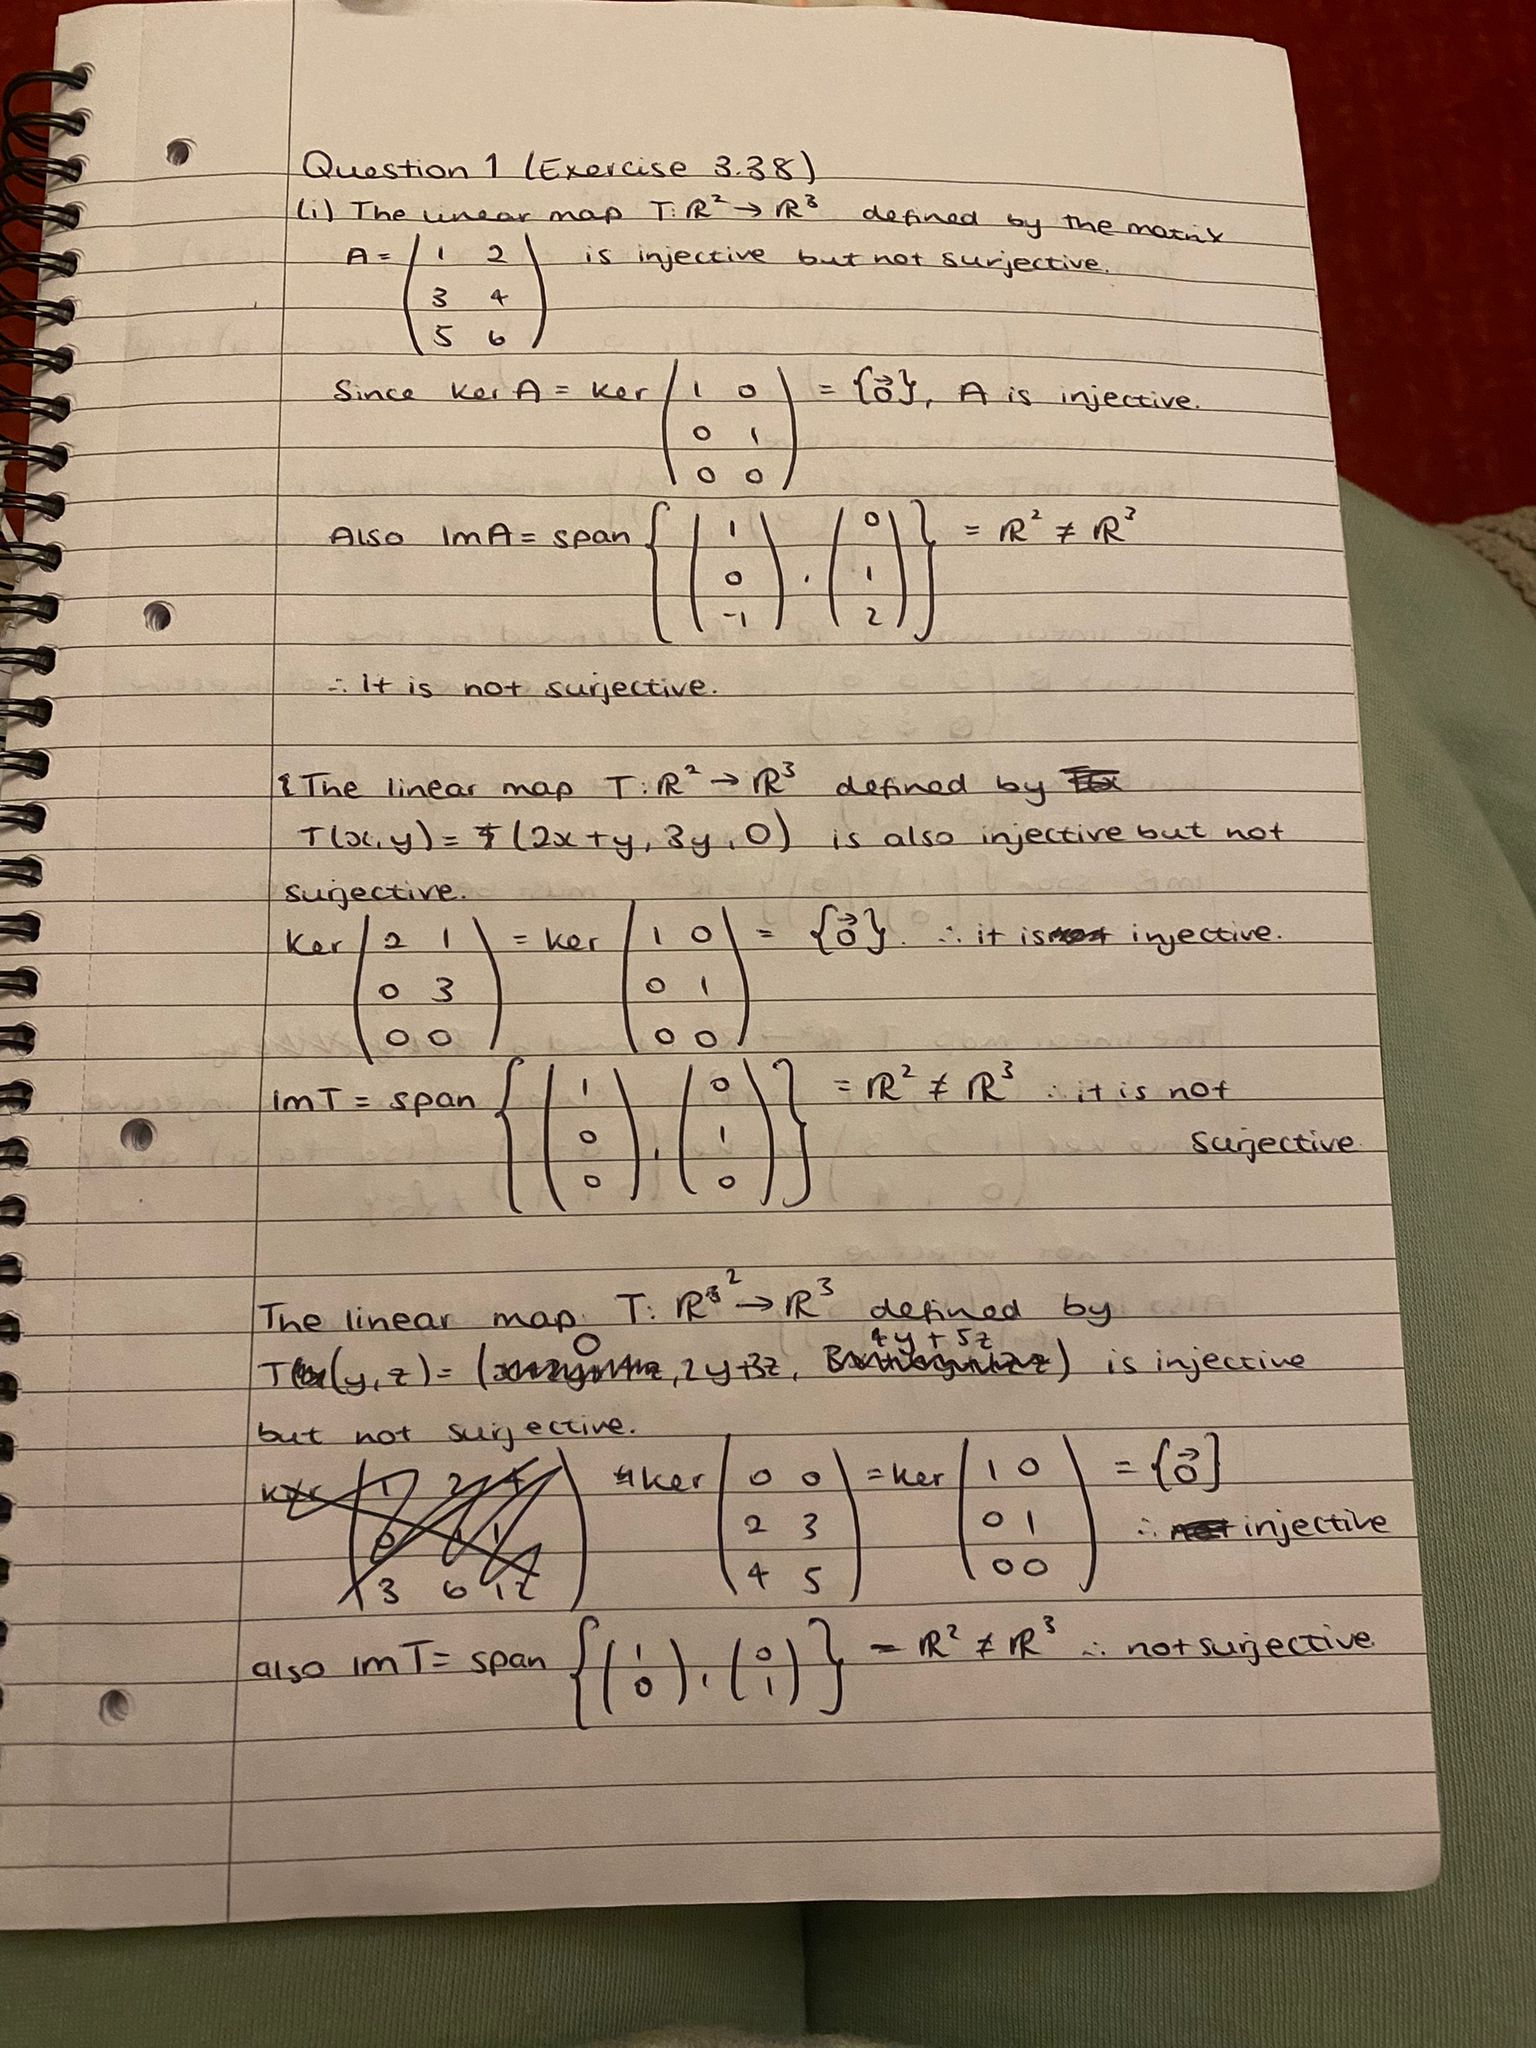 Question 1 (Exercise 3.38)
(i) The linear map T: ℝ² → ℝ³ defined by the matrix
A = ( 1 2 ) is injective but not surjective.
3 4
5 6
Since Ker A = Ker ( 1 0 ) = {0⃗}, A is injective.
0 1
0 0
Also Im A = span { ( 1 ) , ( 0 ) } = ℝ² ≠ ℝ³
0 1
-1 2
∴ It is not surjective.
The linear map T: ℝ² → ℝ³ defined by
T(x, y) = (2x + y, 3y, 0) is also injective but not
surjective.
Ker ( 2 1 ) = Ker ( 1 0 ) = {0⃗}. ∴ it is injective.
0 3 0 1
0 0 0 0
Im T = span { ( 1 ) , ( 0 ) } = ℝ² ≠ ℝ³ ∴ it is not
0 1 surjective
0 0
The linear map T: ℝ² → ℝ³ defined by
T(y, z) = (0, 2y+3z, 4y + 5z) is injective
but not surjective.
Ker ( 0 0 ) = Ker ( 1 0 ) = {0⃗}
2 3 0 1 ∴ injective
4 5 0 0
3 6 12
also Im T = span { ( 1 ) , ( 0 ) } = ℝ² ≠ ℝ³ ∴ not surjective
0 1